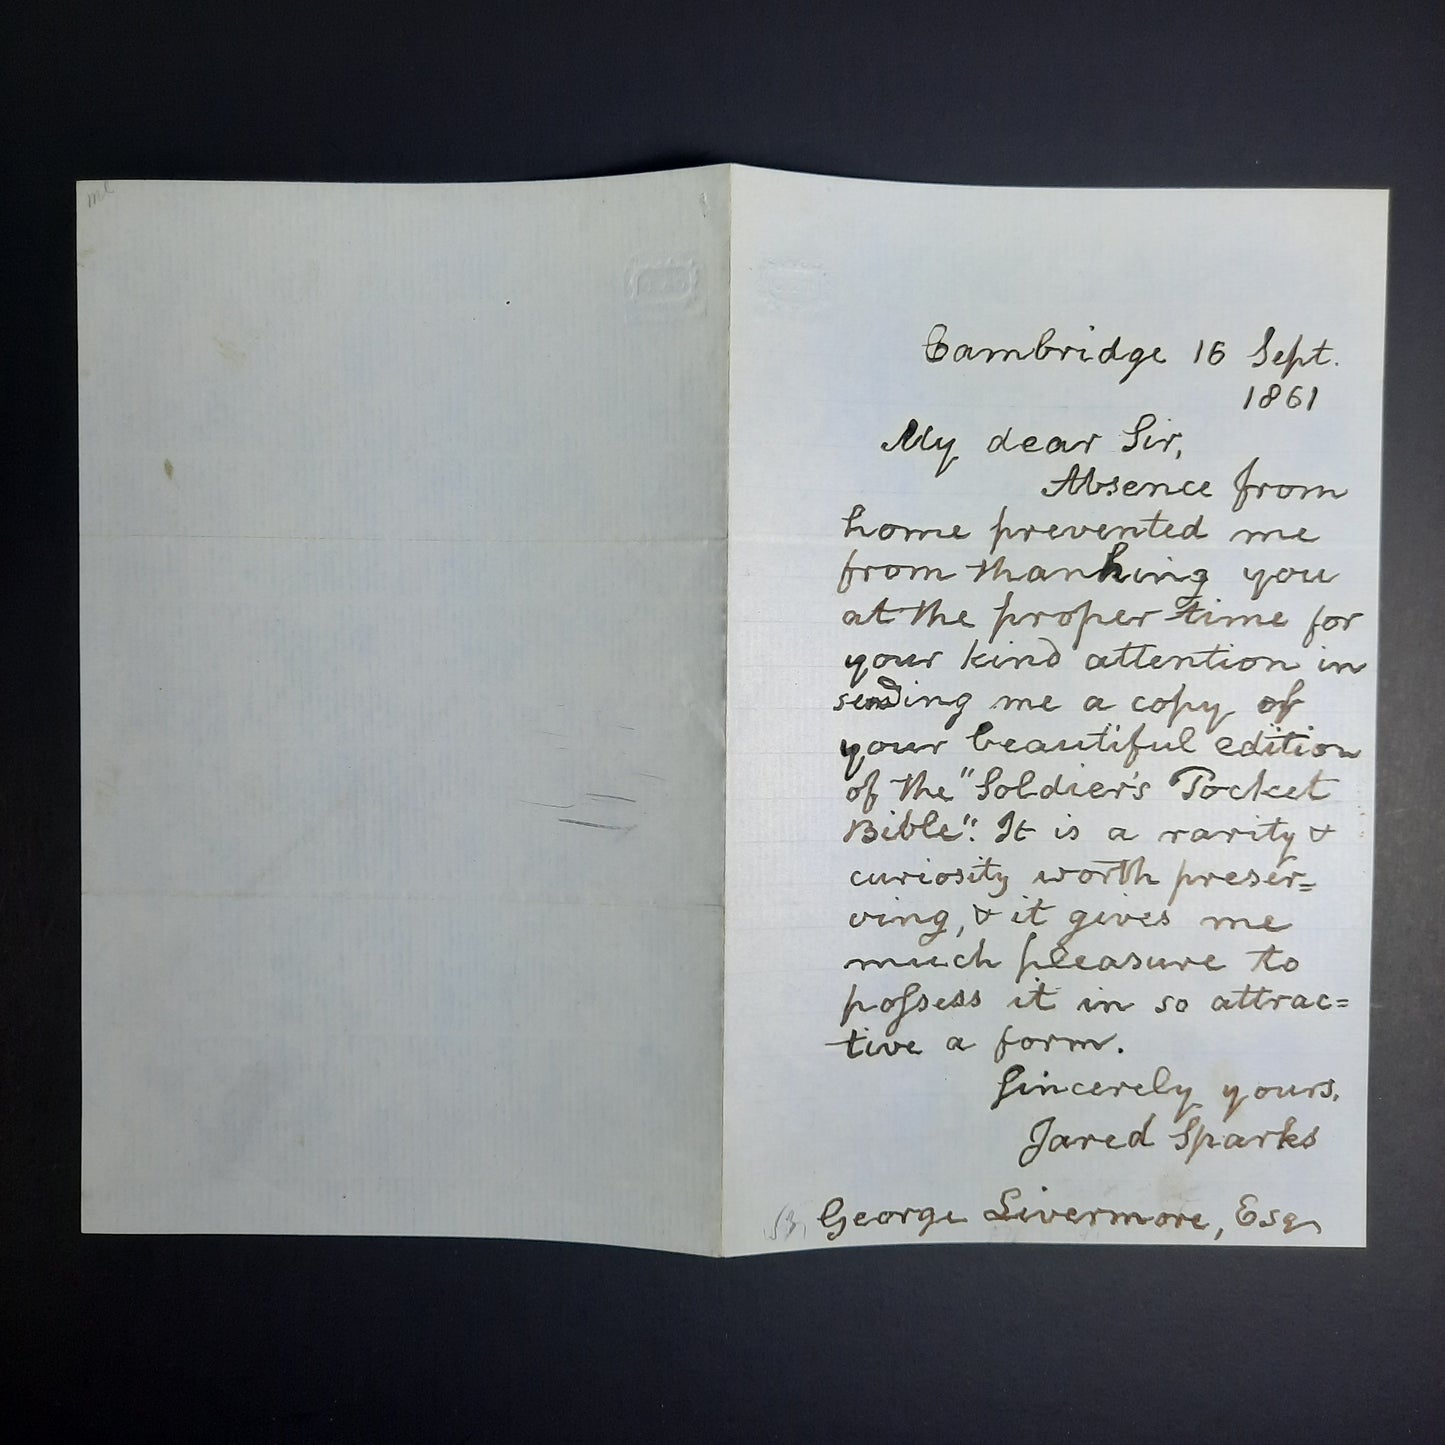 Cambridge 16 Sept.
1861
My dear Sir,
Absence from
home prevented me
from thanking you
at the proper time for
your kind attention in
sending me a copy of
your beautiful edition
of the "Soldier's Pocket
Bible". It is a rarity &
curiosity worth preser=
ving, & it gives me
much pleasure to
poſsess it in so attrac=
tive a form.
Sincerely yours,
Jared Sparks
George Livermore, Esq.